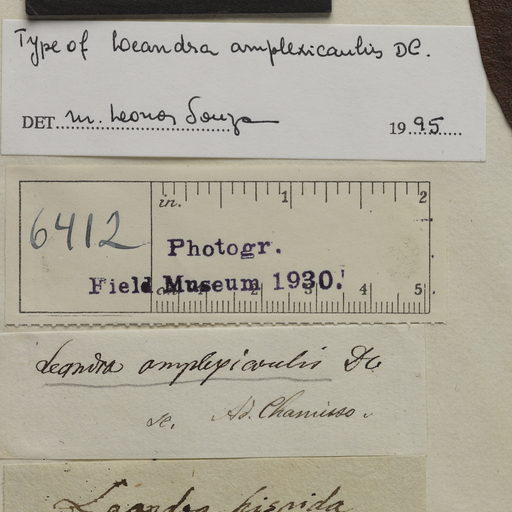 Type of Leandra amplexicaulis DC.
DET. M. Leonor Souza 1995
in. 1 2
6412
Photogr.
Field Museum 1930.
cm 1 2 3 4 5
Leandra amplexicaulis DC
Ad. Chamisso.
Leandra hispida